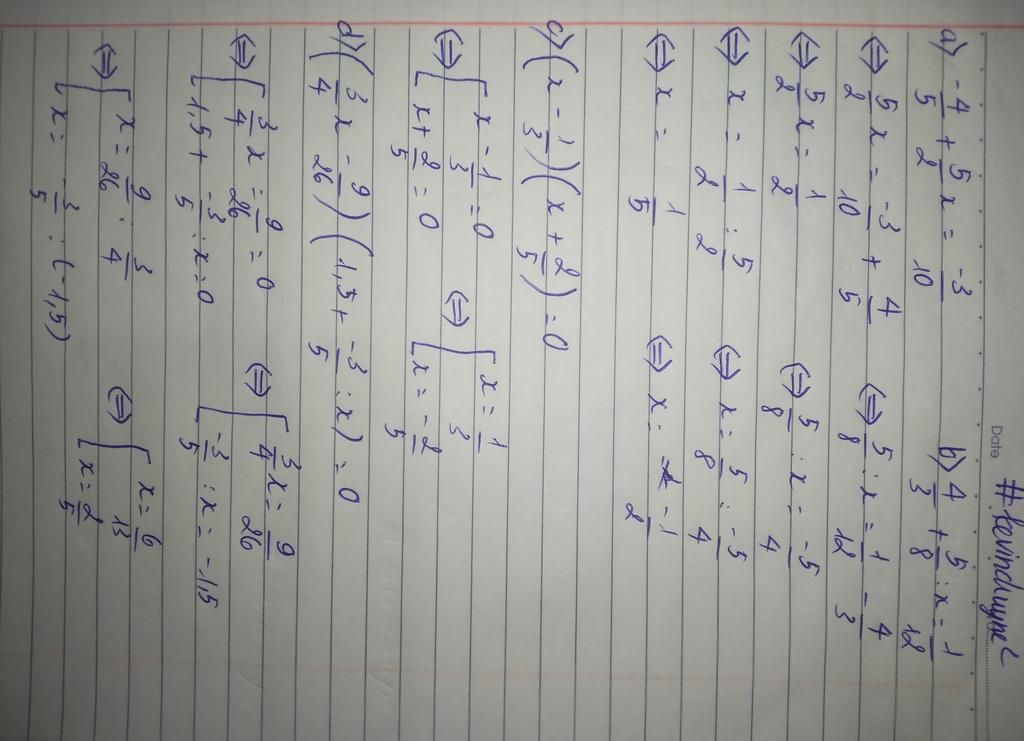 Date
#kevinduynel
a) -4/5 + 5/2 x = -3/10
⇔ 5/2 x = -3/10 + 4/5
⇔ 5/2 x = 1/2
⇔ x = 1/2 : 5/2
⇔ x = 1/5
b) 4/3 + 5/8 : x = 1/12
⇔ 5/8 : x = 1/12 - 4/3
⇔ 5/8 : x = -5/4
⇔ x = 5/8 : -5/4
⇔ x = -1/2
c) (x - 1/3)(x + 2/5) = 0
⇔ [ x - 1/3 = 0 ⇔ [ x = 1/3
x + 2/5 = 0 x = -2/5
d) (3/4 x - 9/26)(1,5 + -3/5 : x) = 0
⇔ [ 3/4 x = 9/26 = 0 ⇔ [ 3/4 x = 9/26
1,5 + -3/5 : x = 0 -3/5 : x = -1,5
⇔ [ x = 9/26 : 3/4 ⇔ [ x = 6/13
x = -3/5 : (-1,5) x = 2/5